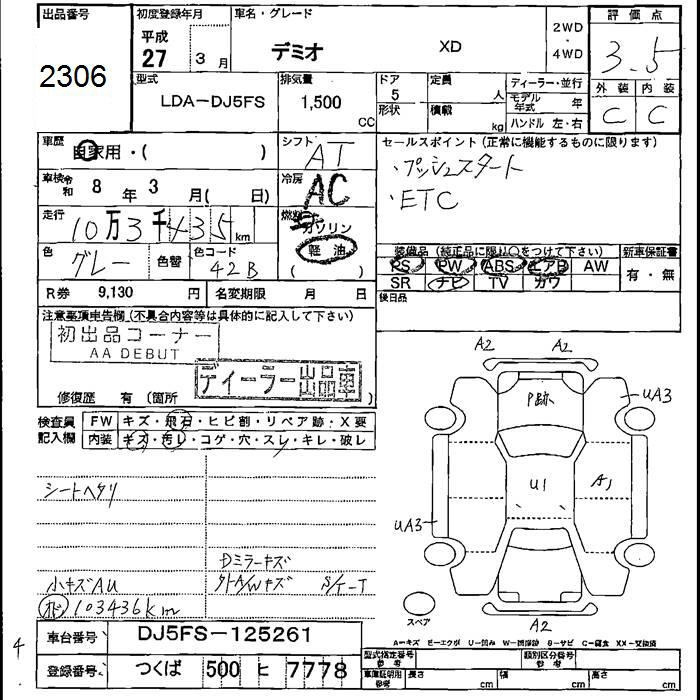 出品番号 初度登録年月 車名・グレード 2WD・4WD 評価点
2306 平成 27 3月 デミオ XD 3.5
型式 排気量 ドア 定員 ディーラー・並行 外装 内装
LDA-DJ5FS 1,500 CC 5 人 モデル年式 年 C C
形状 積載 kg ハンドル 左・右
車歴 自家用・( ) シフト AT セールスポイント (正常に機能するものに限ります)
・プッシュスタート
車検 令和 8年 3月( 日) 冷房 AC ・ETC
走行 10万3千435km 燃料 ガソリン
軽油
( )
色 グレー 色替 色コード 42B
装備品 (純正品に限り○をつけて下さい) 新車保証書
PS PW ABS エアB AW 有・無
SR ナビ TV カワ
R券 9,130円 名変期限 月 日 後日品
注意事項申告欄 (不具合内容等は具体的に記入して下さい)
初出品コーナー
AA DEBUT
ディーラー出品車
修復歴 有 (箇所
検査員記入欄 FW キズ・飛石・ヒビ割・リペア跡・X要
内装 キズ・汚レ・コゲ・穴・スレ・キレ・破レ
シートヘタリ
Dミラーキズ
小キズAU 外ト A/Wキズ
103436km
A2 A2
P跡
UA3
U1 A1
UA3
スペア A2
A=キズ E=エクボ U=凹み W=補修跡 S=サビ C=腐食 XX=交換済
車台番号 DJ5FS-125261
4
登録番号 つくば 500 ヒ 7778
型式指定番号 参考 類別区分番号 参考
車庫証明用 参考 長さ cm 幅 cm 高さ cm